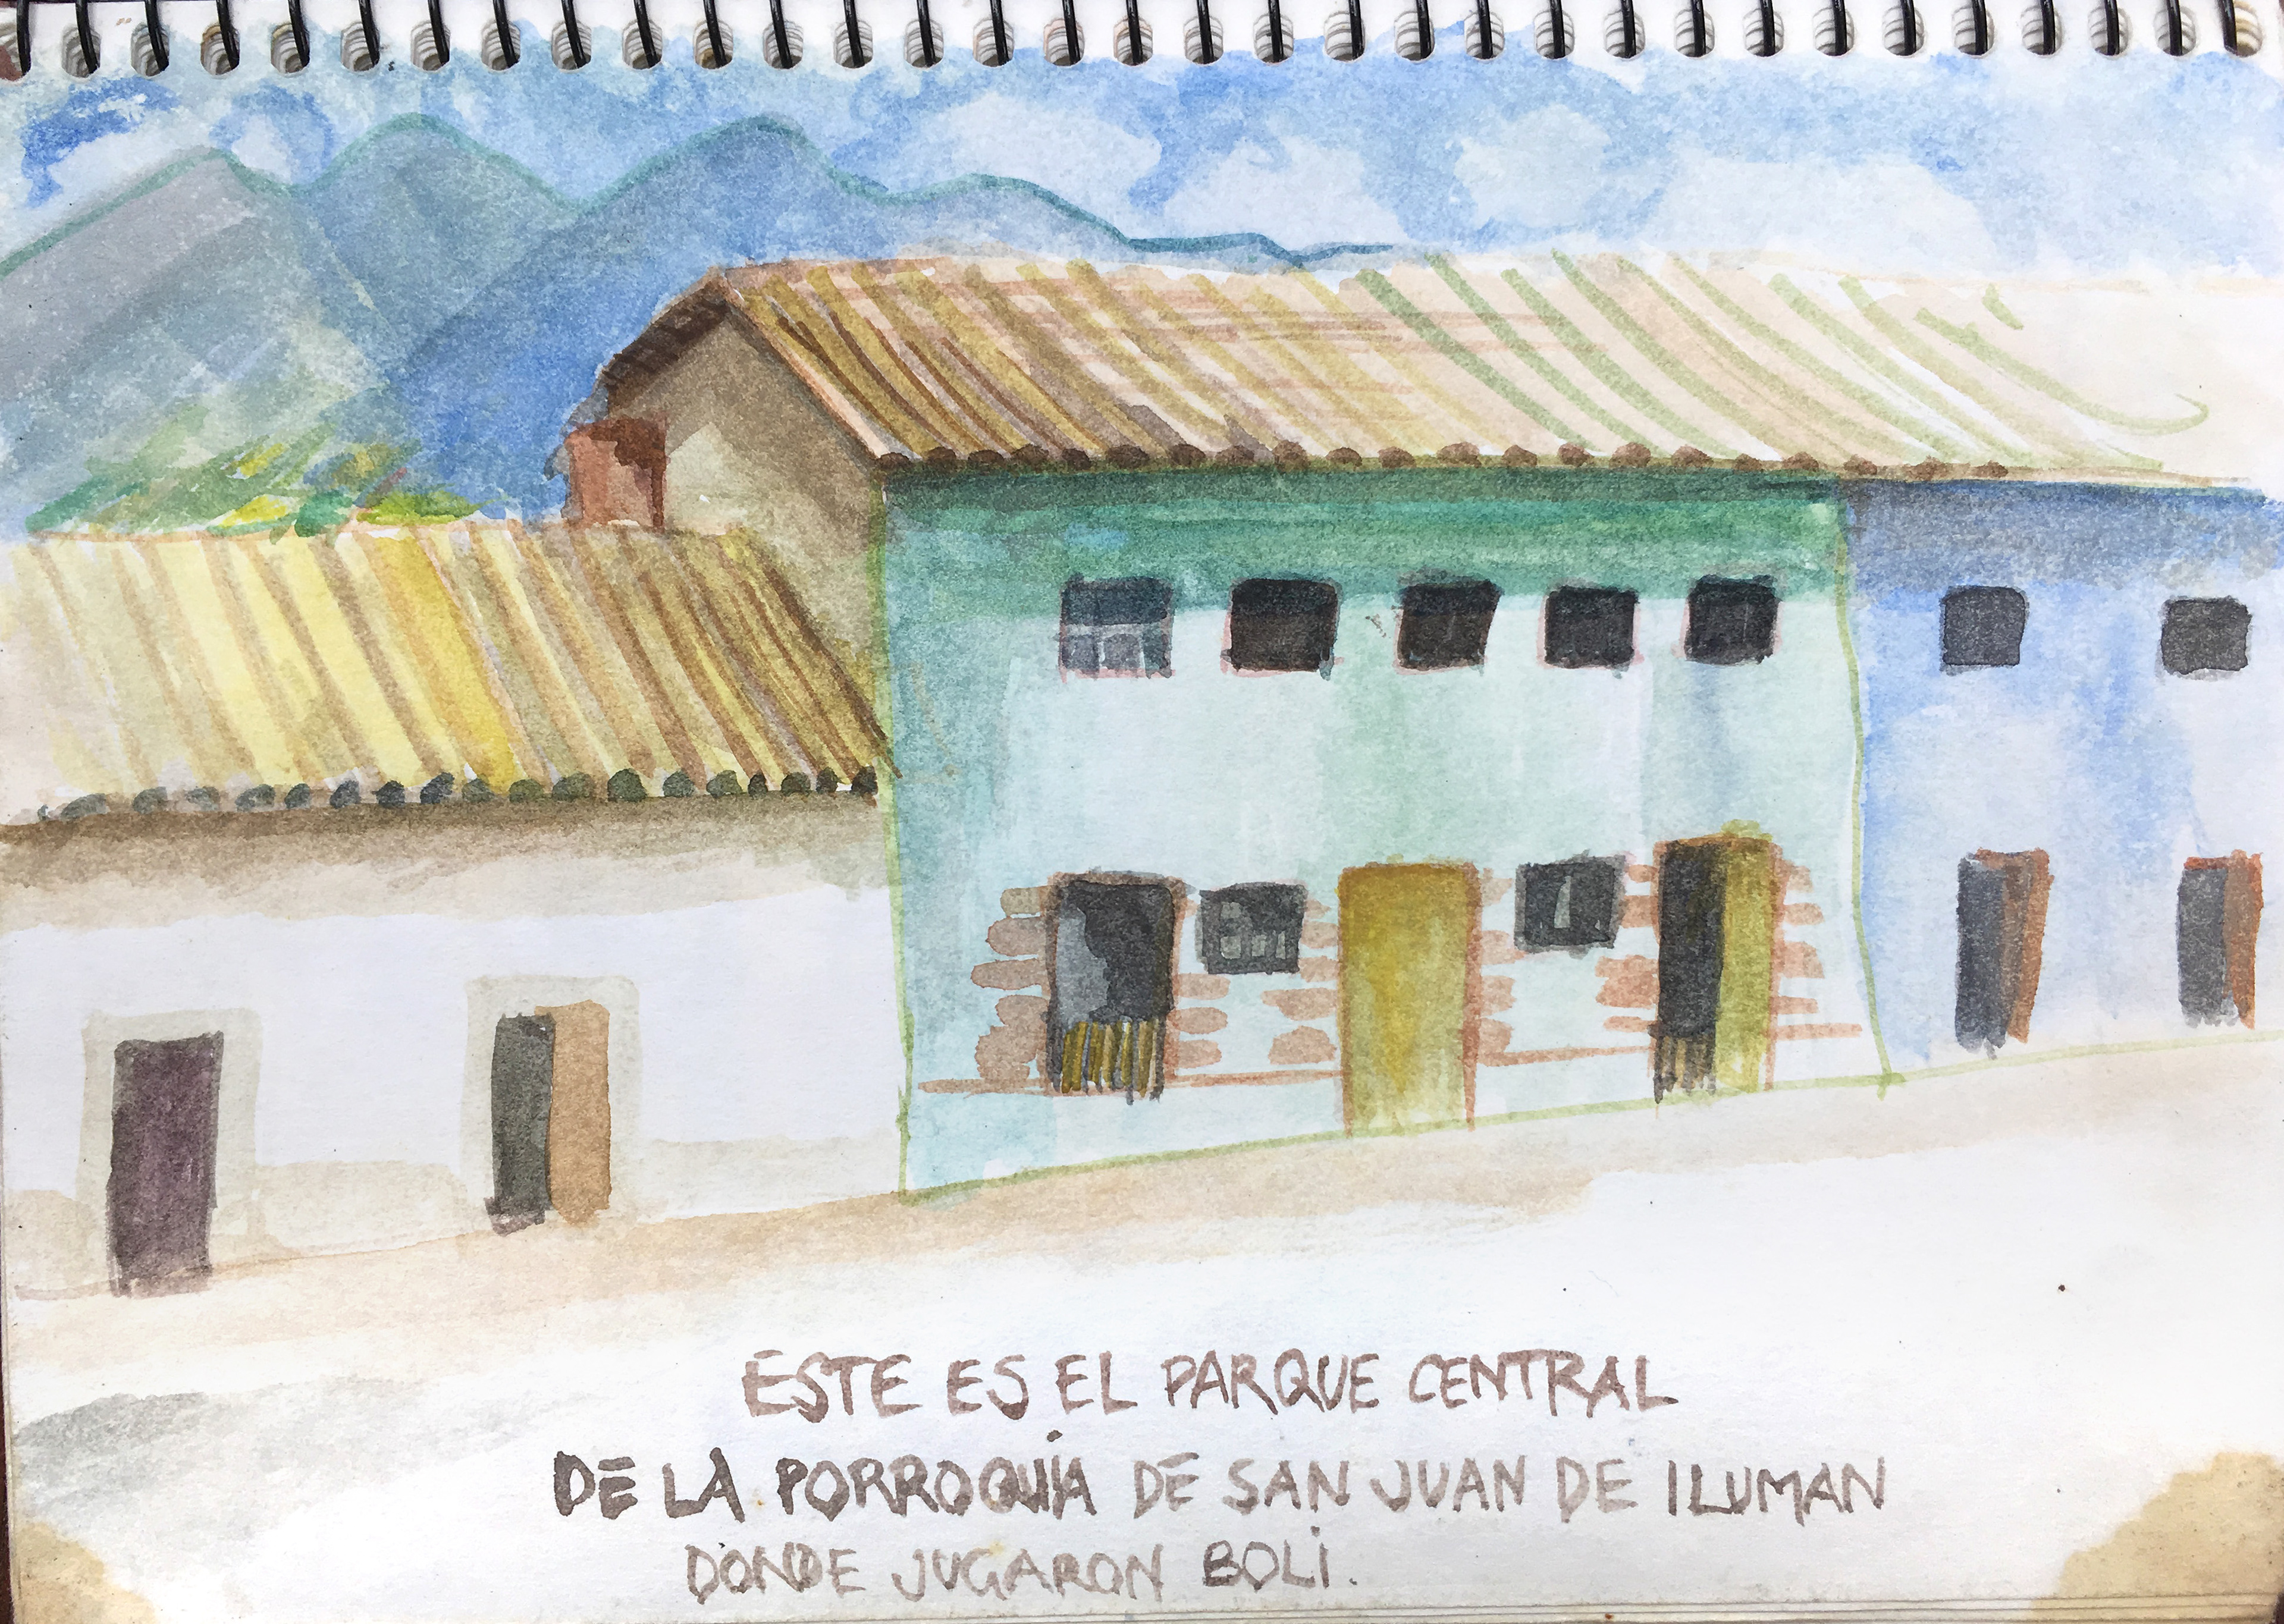 ESTE ES EL PARQUE CENTRAL
DE LA PORROQUIA DE SAN JUAN DE ILUMAN
DONDE JUGARON BOLI.